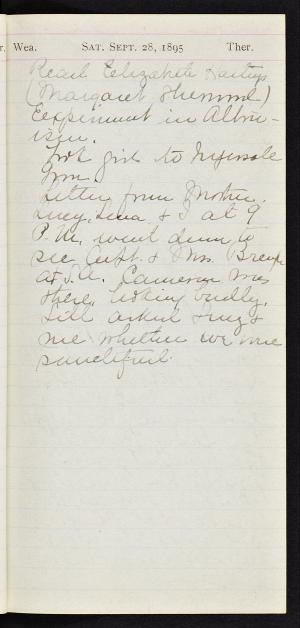 r. Wea. SAT. SEPT. 28, 1895 Ther.
Read Elizabeth Hastings
(Margaret Sherwood)
Experiment in Altru-
ism.
Took girls to Ingersole
Gym.
Letter from Mother.
Lucy, & I at 9
P.M. went down to
see Capt. & Mrs.
at S.A. Cameron was
there, looking badly.
Lill asked Lucy &
me whether we were
sanctified.